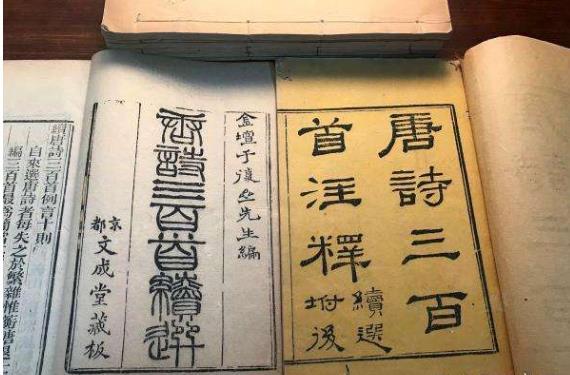 唐詩三百
首注釋
續選
坿後
金壇于復先生編
唐詩三百首續選
京都文成堂藏板
續唐詩三百首例言十則
自來選唐詩者每失之於繁雜惟蘅塘退
編三百首最爲簡當